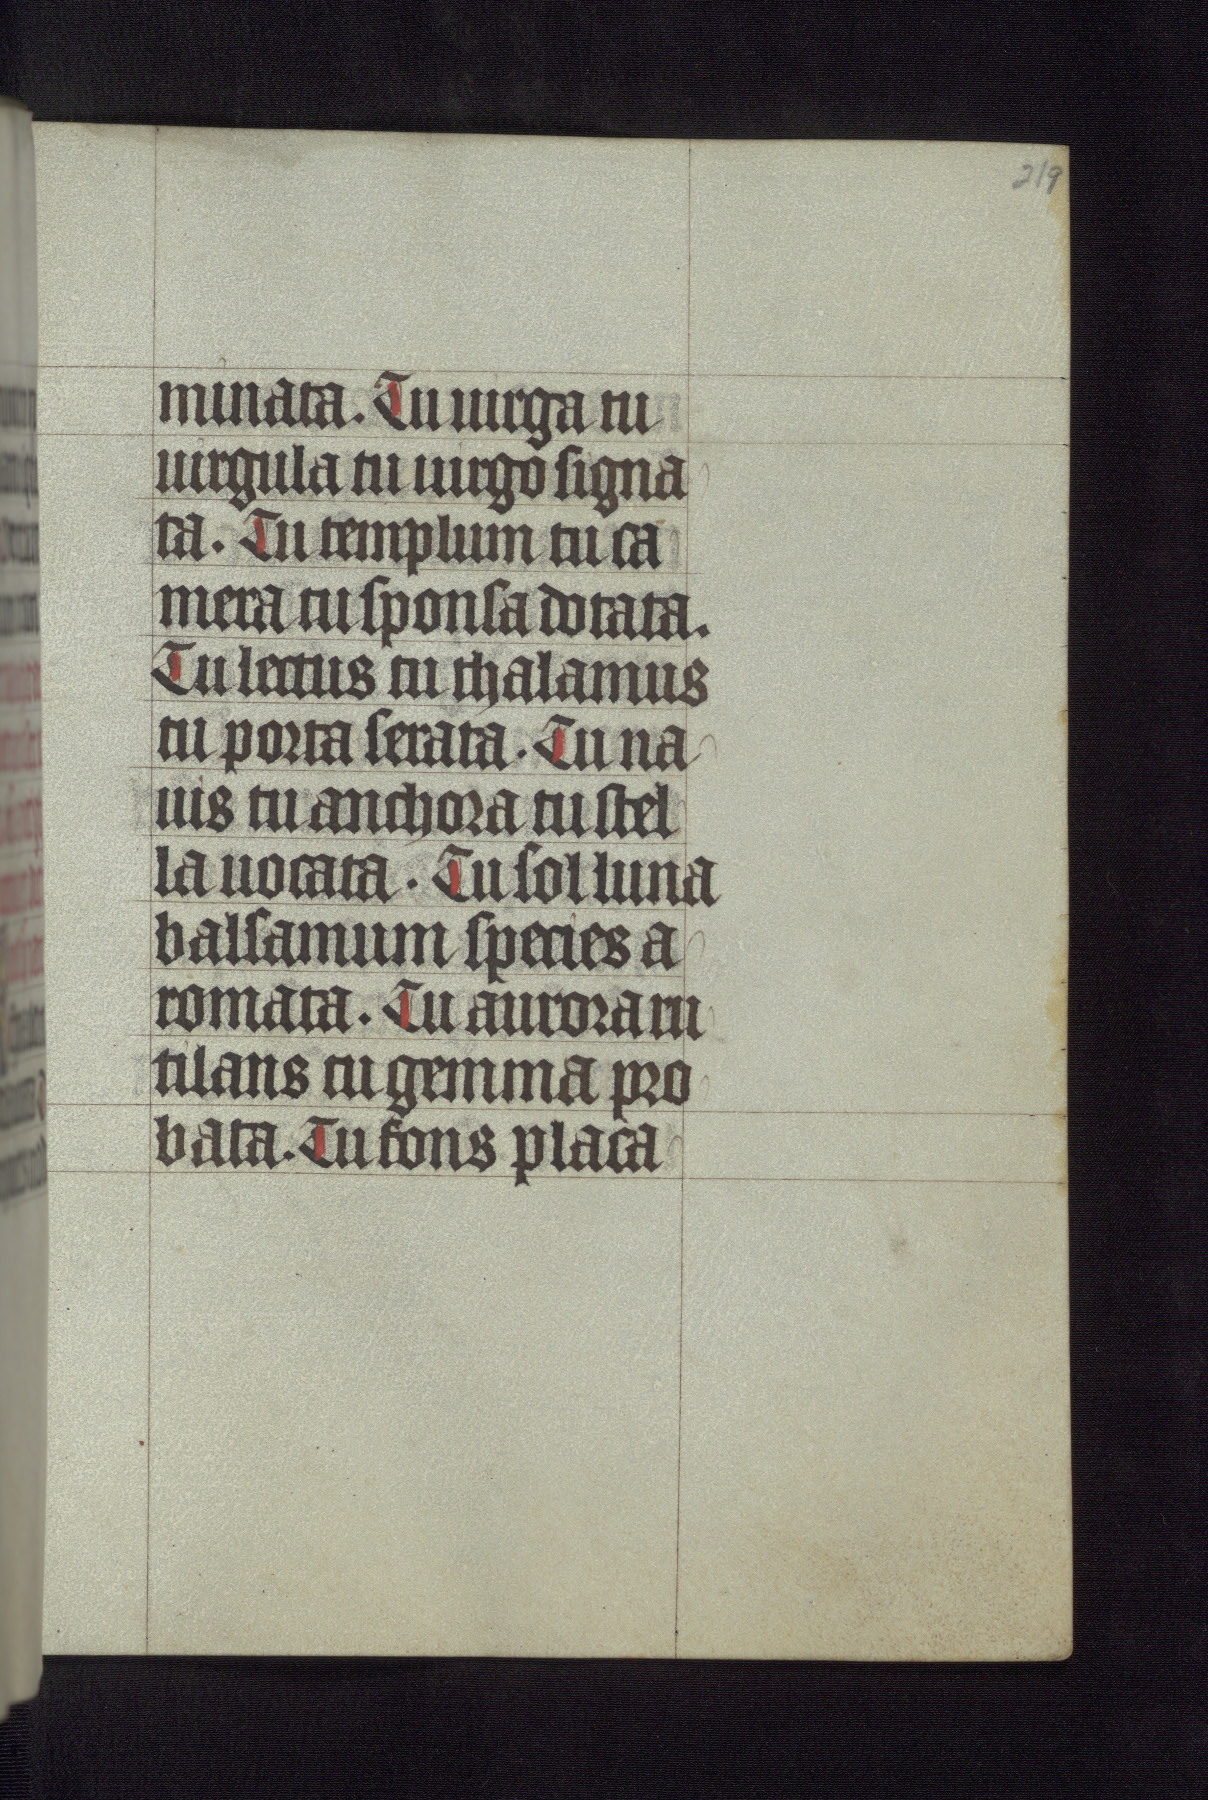 219
minata. Tu uirga tu
uirgula tu uirgo signa
ta. Tu templum tu ca
mera tu sponsa dotata.
Tu lectus tu thalamus
tu porta serata. Tu na
uis tu anchora tu stel
la uocata. Tu sol luna
balsamum species a
romata. Tu aurora ru
tilans tu gemma pro
bata. Tu fons placa